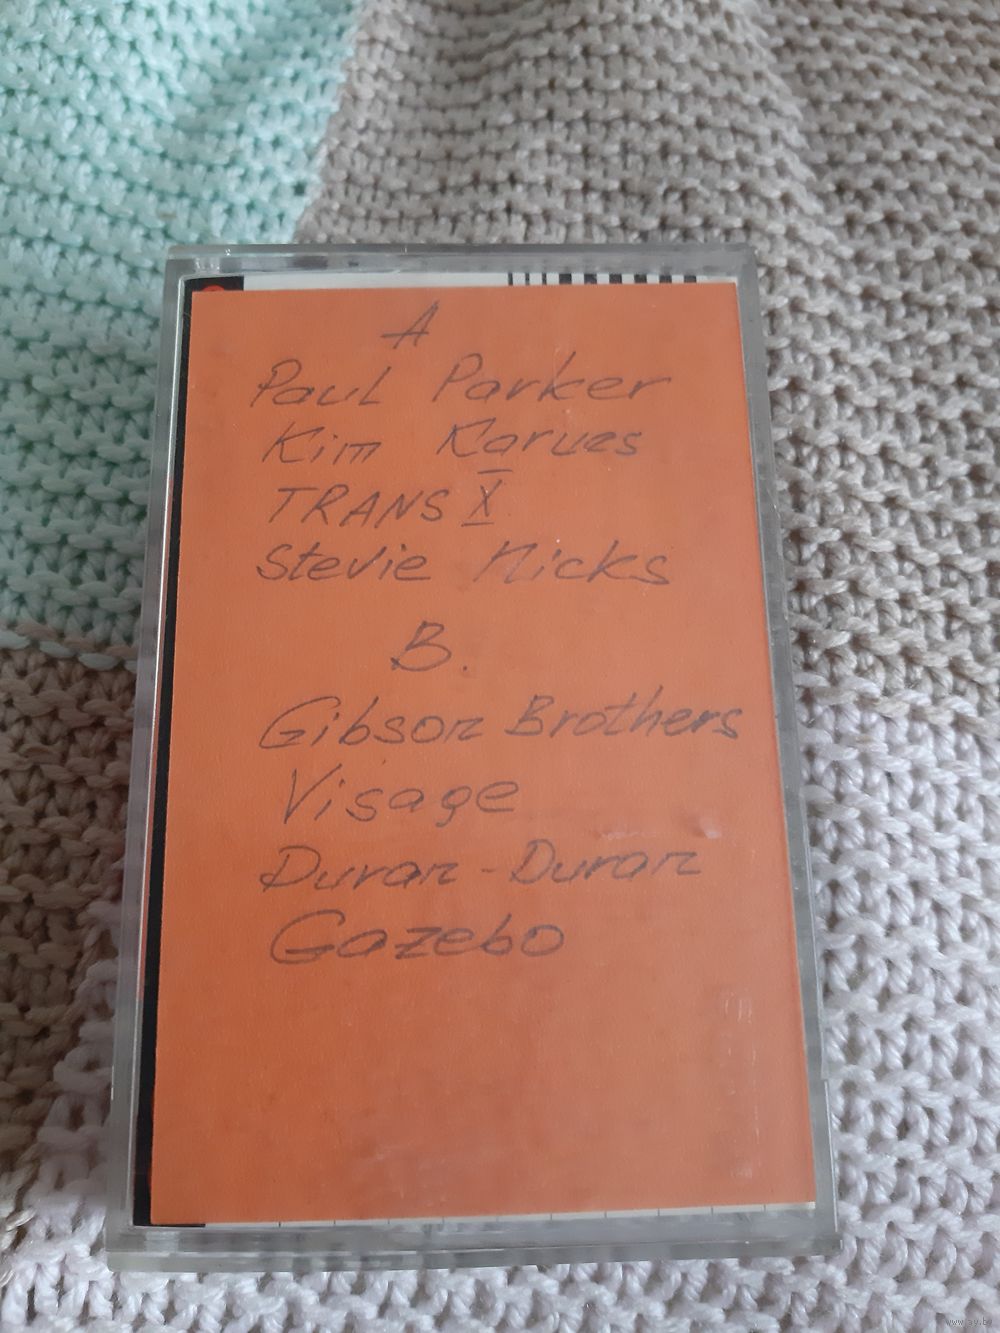 A
Paul Parker
Kim Karues
TRANS X
Stevie Nicks
B.
Gibson Brothers
Visage
Duran-Duran
Gazebo
www.ay.by